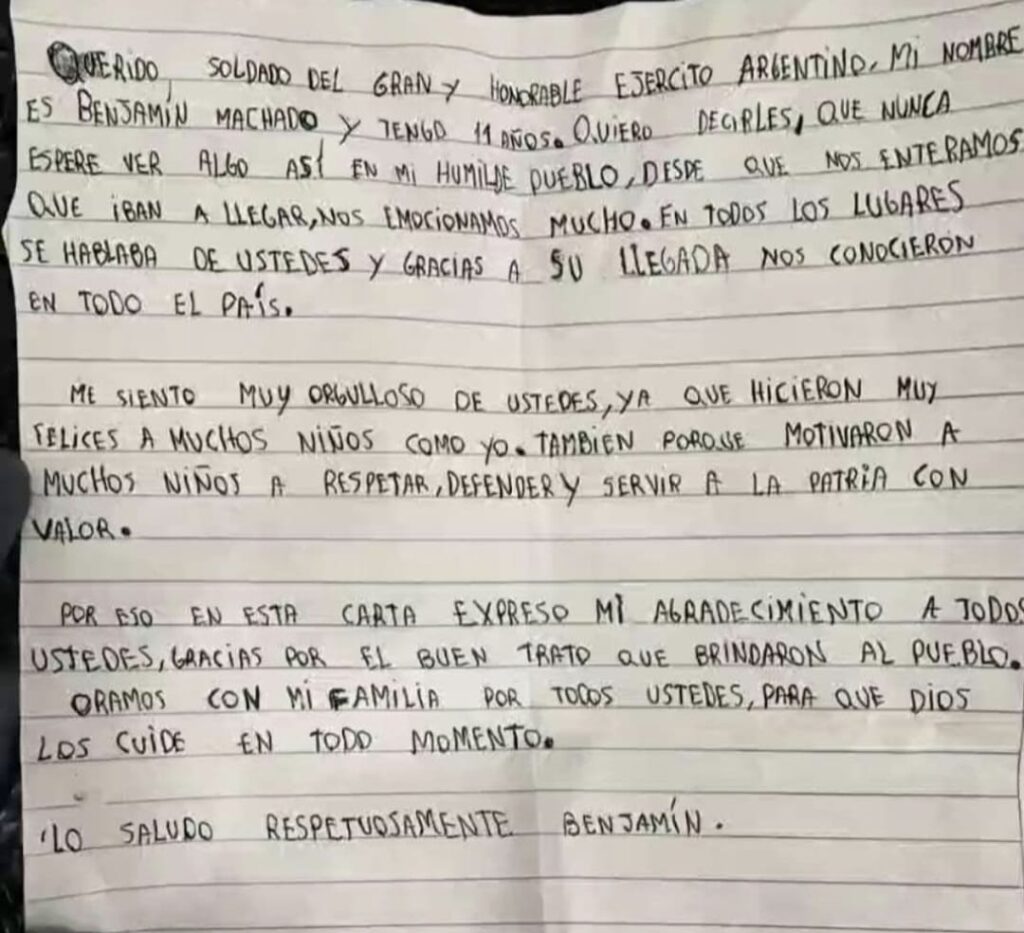 QUERIDO, SOLDADO DEL GRAN Y HONORABLE EJERCITO ARGENTINO. MI NOMBRE
ES BENJAMÍN MACHADO Y TENGO 11 AÑOS. QUIERO DECIRLES, QUE NUNCA
ESPERE VER ALGO ASÍ EN MI HUMILDE PUEBLO, DESDE QUE NOS ENTERAMOS
QUE IBAN A LLEGAR, NOS EMOCIONAMOS MUCHO. EN TODOS LOS LUGARES
SE HABLABA DE USTEDES Y GRACIAS A SU LLEGADA NOS CONOCIERON
EN TODO EL PAÍS.
ME SIENTO MUY ORGULLOSO DE USTEDES, YA QUE HICIERON MUY
FELICES A MUCHOS NIÑOS COMO YO. TAMBIEN PORQUE MOTIVARON A
MUCHOS NIÑOS A RESPETAR, DEFENDER Y SERVIR A LA PATRIA CON
VALOR.
POR ESO EN ESTA CARTA EXPRESO MI AGRADECIMIENTO A TODOS
USTEDES, GRACIAS POR EL BUEN TRATO QUE BRINDARON AL PUEBLO.
ORAMOS CON MI FAMILIA POR TODOS USTEDES, PARA QUE DIOS
LOS CUIDE EN TODO MOMENTO.
LO SALUDO RESPETUOSAMENTE BENJAMÍN.